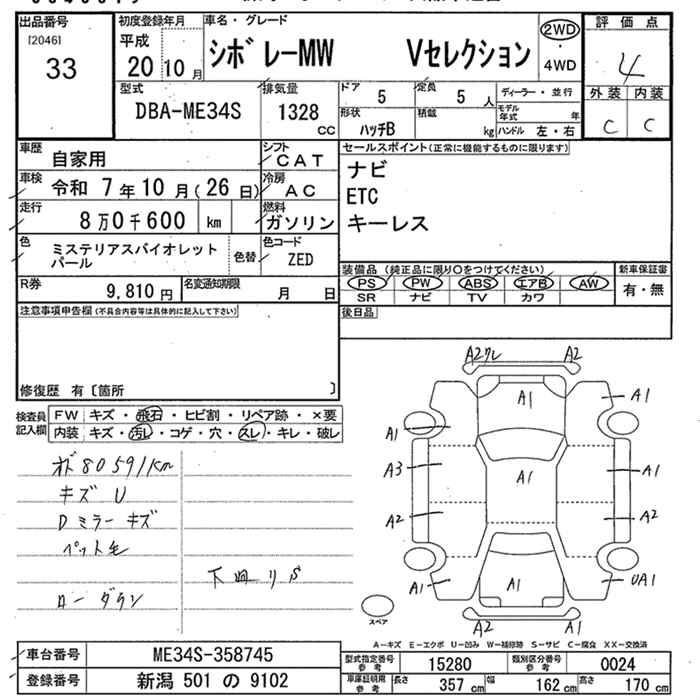 出品番号
[2046]
33
初度登録年月
平成
20 10 月
車名・グレード
シボレーMW Vセレクション
2WD
・
4WD
評価点
4
外装 内装
C C
型式
DBA-ME34S
排気量
1328
CC
ドア
5
定員
5 人
形状
ハッチB
積載
kg
ディーラー・並行
モデル年式 年
ハンドル 左・右
車歴
自家用
シフト
CAT
車検
令和 7 年 10 月 ( 26 日)
冷房
AC
走行
8 万 0 千 600 km
燃料
ガソリン
色
ミステリアスバイオレット
パール
色替
色コード
ZED
R券
9,810 円
名変通知期限
月 日
セールスポイント(正常に機能するものに限ります)
ナビ
ETC
キーレス
装備品 (純正品に限り〇をつけてください)
PS PW ABS エアB AW
SR ナビ TV カワ
新車保証書
有・無
後日品
注意事項申告欄(不具合内容等は具体的に記入して下さい)
修復歴 有〔箇所 〕
検査員
記入欄
FW キズ・飛石・ヒビ割・リペア跡・×要
内装 キズ・汚レ・コゲ・穴・スレ・キレ・破レ
オド 80591km
キズ U
Dミラー キズ
ペット毛
下回り S
ローダウン
A2ワレ A2
A1 A1
A1
A3 A1 A1
A2 A2
A1 A1 UA1
A2 A1
スペア
A-キズ E-エクボ U-凹み W-補修跡 S-サビ C-腐食 XX-交換済
車台番号 ME34S-358745
登録番号 新潟 501 の 9102
型式指定番号
参考
15280
類別区分番号
参考
0024
車庫証明用
参考
長さ 357 cm 幅 162 cm 高さ 170 cm